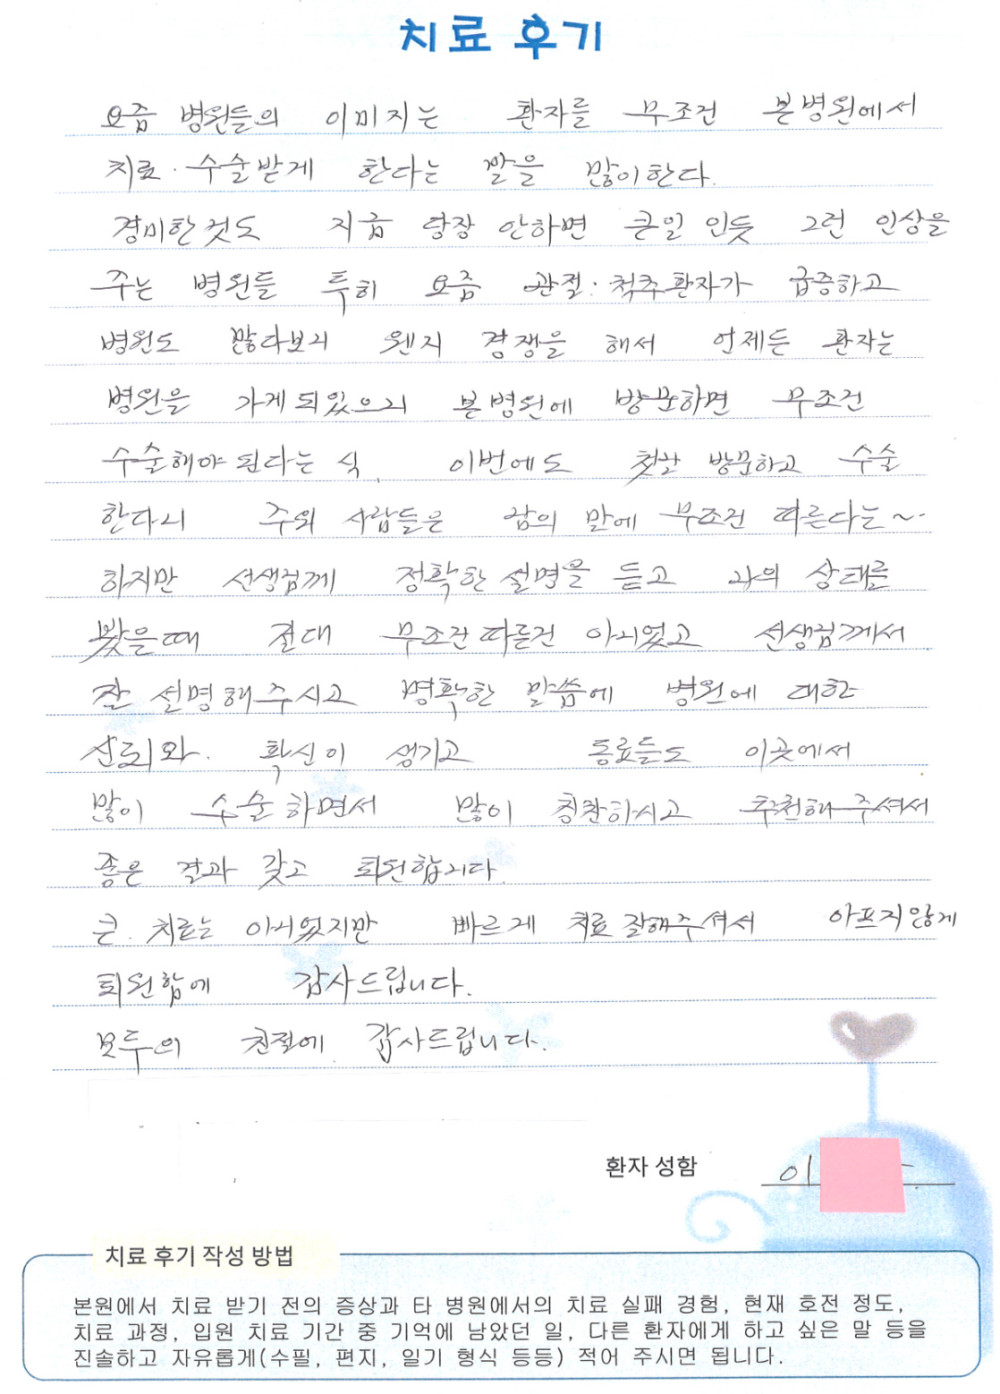 치료 후기
요즘 병원들의 이미지는 환자를 무조건 본병원에서
치료·수술받게 한다는 말을 많이한다.
경미한것도 지금 당장 안하면 큰일 인듯 그런 인상을
주는 병원들 특히 요즘 관절·척추환자가 급증하고
병원도 많다보니 웬지 경쟁을 해서 언제든 환자는
병원을 가게되있으니 본병원에 방문하면 무조건
수술해야 된다는 식, 이번에도 첫발 방문하고 수술
한다니 주위 사람들은 남의 말에 무조건 따른다는~·
하지만 선생님께 정확한 설명을 듣고 나의 상태를
봤을때 절대 무조건 따른건 아니였고 선생님께서
잘 설명해주시고 명확한 말씀에 병원에 대한
신뢰와 확신이 생기고 동료들도 이곳에서
많이 수술하면서 많이 칭찬하시고 추천해주셔서
좋은 결과 갖고 퇴원합니다.
큰 치료는 아니였지만 빠르게 치료 잘해주셔서 아프지않게
퇴원함에 감사드립니다.
모두의 친절에 감사드립니다.
환자 성함 이
치료 후기 작성 방법
본원에서 치료 받기 전의 증상과 타 병원에서의 치료 실패 경험, 현재 호전 정도,
치료 과정, 입원 치료 기간 중 기억에 남았던 일, 다른 환자에게 하고 싶은 말 등을
진솔하고 자유롭게(수필, 편지, 일기 형식 등등) 적어 주시면 됩니다.